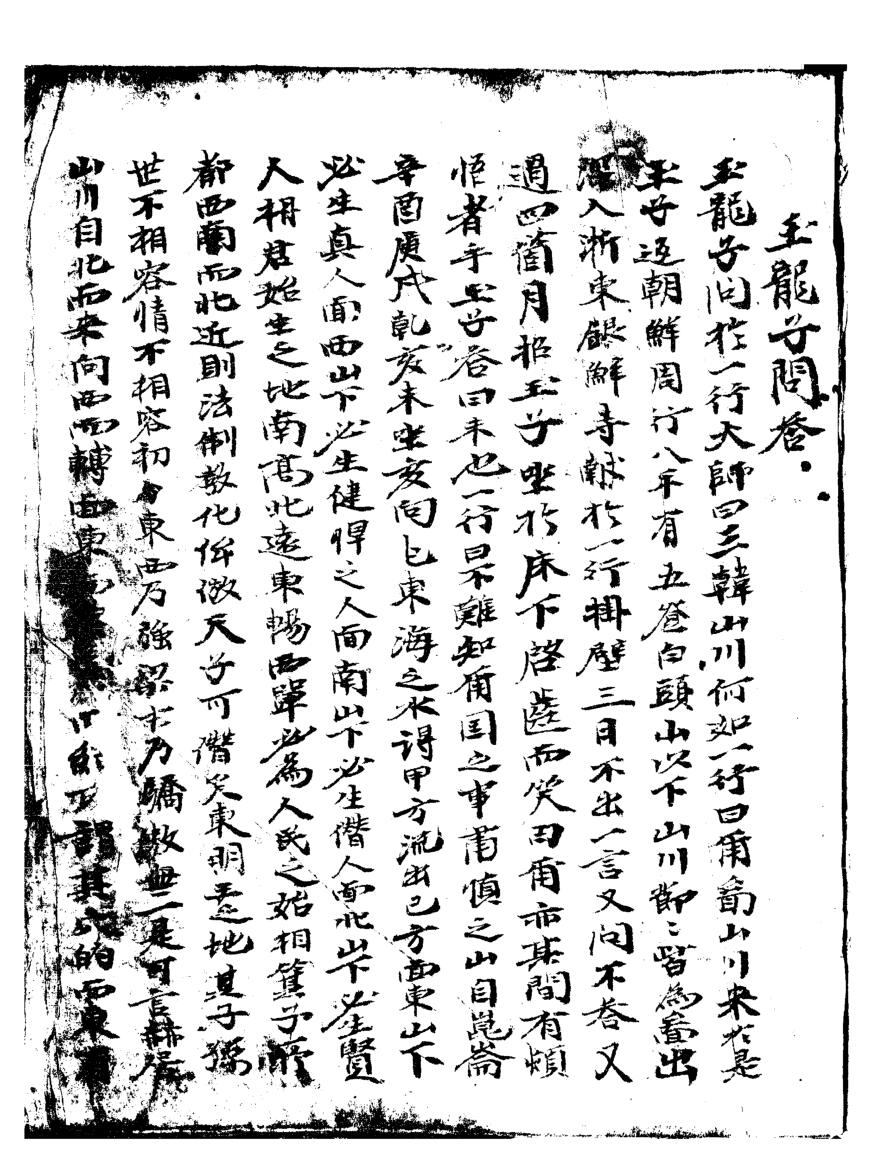 玉龍子問答
玉龍子問於一行大師曰三韓山川何如一行曰爾畵山川來於是
玉子返朝鮮周行八年有五登白頭山以下山川節〻皆為畵出
深入浙東銀鮮寺献於一行掛壁三日不出一言又問不答又
過四箇月招玉子坐於床下啓齒而笑曰爾亦其間有煩
悟者乎玉子答曰未也一行曰不難知爾国之事肅慎之山自崑崙
辛酉庚戌乾亥未坐亥向巳東海之水得甲方流出巳方面東山下
必生真人面西山下必生健悍之人面南山下必生僭人面北山下必生賢
人相君始生之地南高北遠東暢西單必為人民之始相箕子所
都西蘭而北近則法制敎化侔倣天子可僭矣東明之地其子孫
世不相容情不相容初分東西乃強梁 乃驕傲 二是可言赫居
山川自北而来向西 轉面東 謂其 的而東